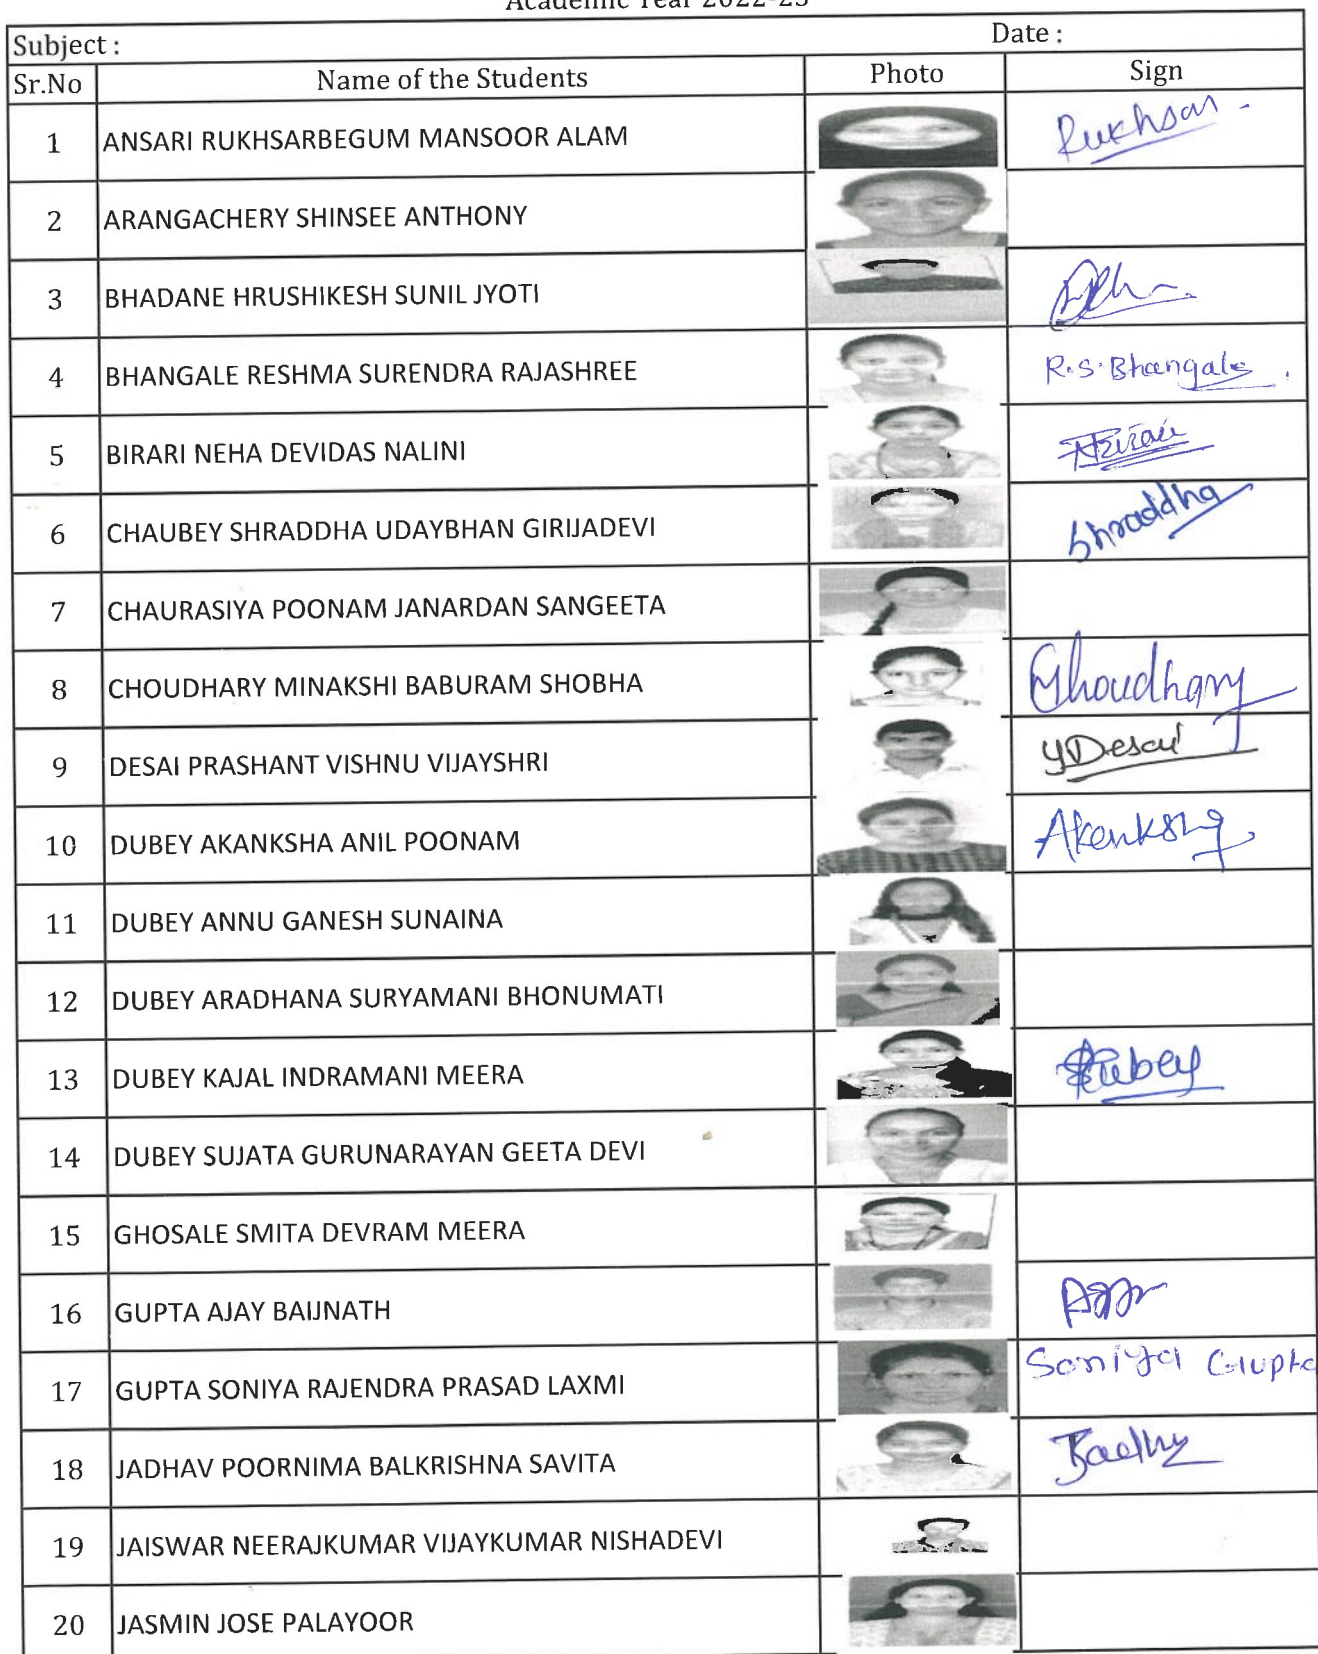 Academic Year 2022-23
Subject : Date :
Sr.No Name of the Students Photo Sign
1 ANSARI RUKHSARBEGUM MANSOOR ALAM Rukhsar
2 ARANGACHERY SHINSEE ANTHONY
3 BHADANE HRUSHIKESH SUNIL JYOTI
4 BHANGALE RESHMA SURENDRA RAJASHREE R.S.Bhangale
5 BIRARI NEHA DEVIDAS NALINI
6 CHAUBEY SHRADDHA UDAYBHAN GIRIJADEVI Shraddha
7 CHAURASIYA POONAM JANARDAN SANGEETA
8 CHOUDHARY MINAKSHI BABURAM SHOBHA
9 DESAI PRASHANT VISHNU VIJAYSHRI
10 DUBEY AKANKSHA ANIL POONAM
11 DUBEY ANNU GANESH SUNAINA
12 DUBEY ARADHANA SURYAMANI BHONUMATI
13 DUBEY KAJAL INDRAMANI MEERA
14 DUBEY SUJATA GURUNARAYAN GEETA DEVI
15 GHOSALE SMITA DEVRAM MEERA
16 GUPTA AJAY BAIJNATH
17 GUPTA SONIYA RAJENDRA PRASAD LAXMI Soniya Gupta
18 JADHAV POORNIMA BALKRISHNA SAVITA
19 JAISWAR NEERAJKUMAR VIJAYKUMAR NISHADEVI
20 JASMIN JOSE PALAYOOR